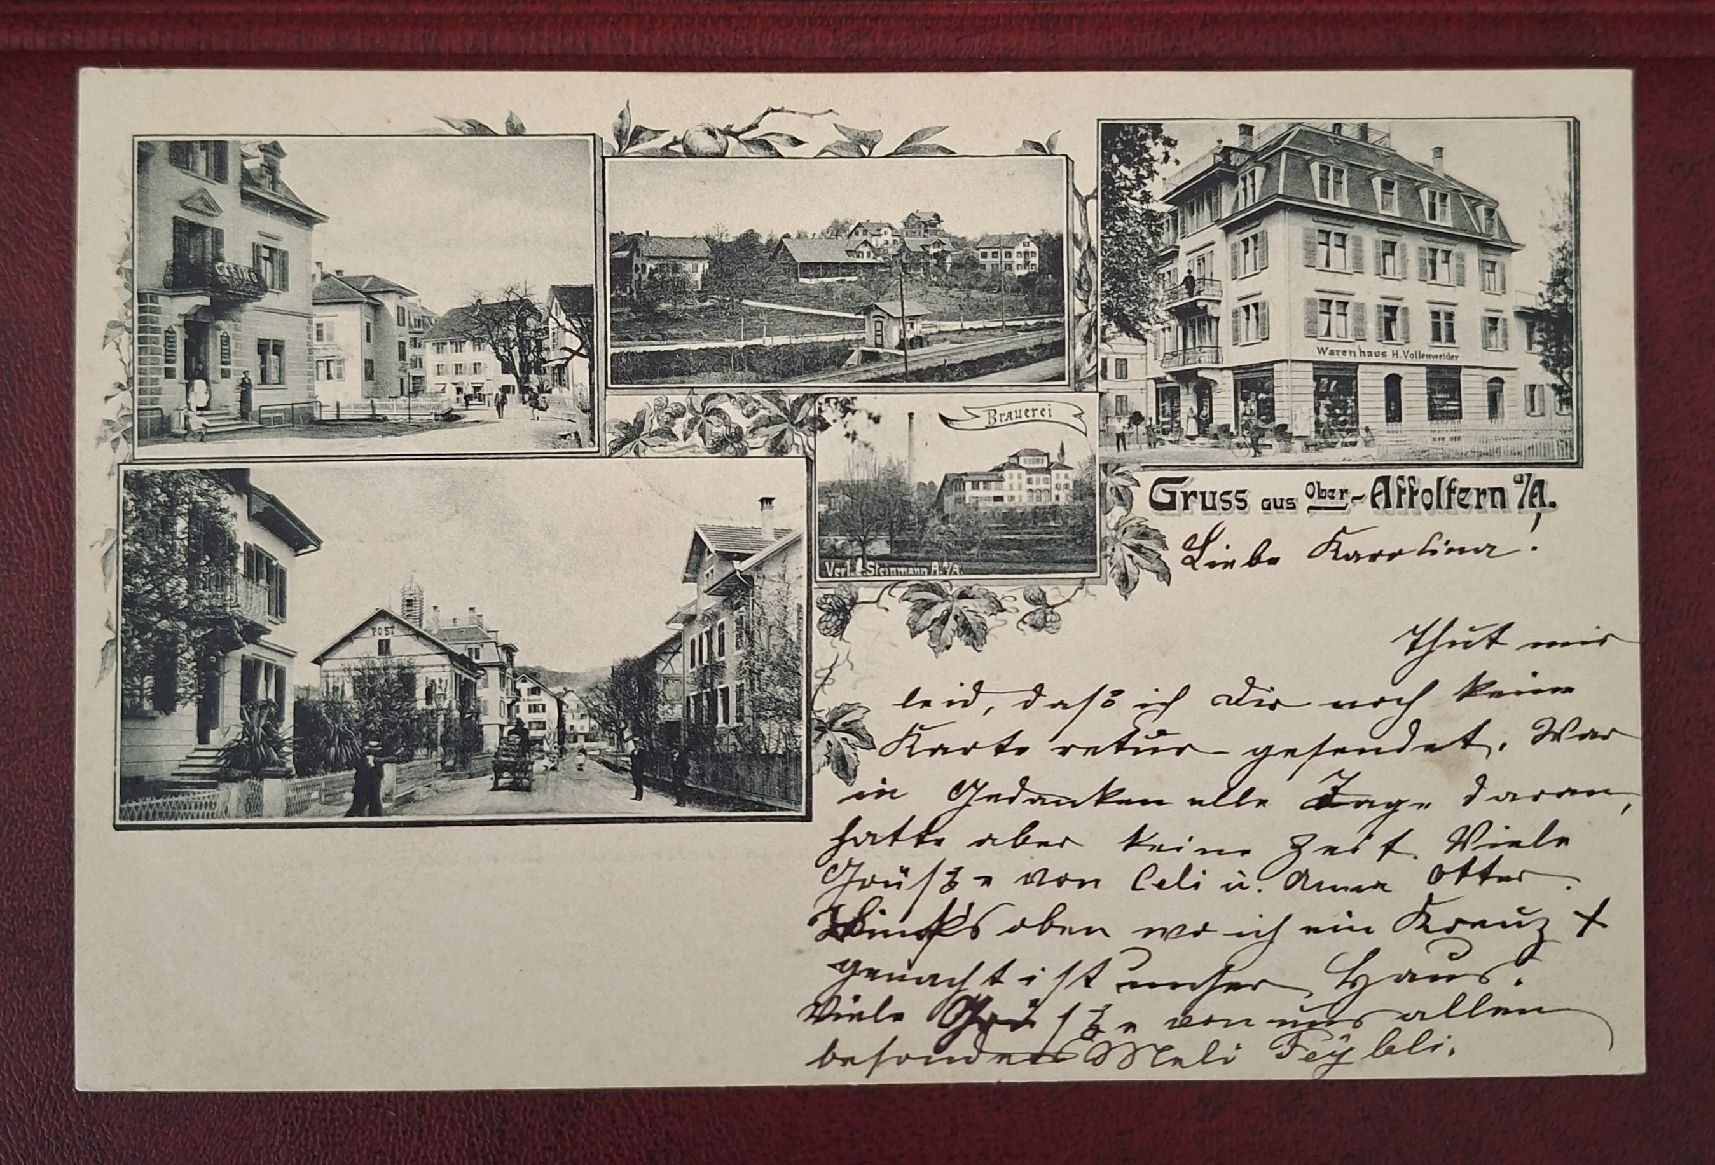 CASINO
Warenhaus H. Vollenweider
Brauerei
Verl. E. Steinmann A. a/A.
POST
Gruss aus Ober-Affoltern a/A.
Liebe Karolina!
Thut mir
leid, daß ich Dir noch keine
Karte retur-gesendet. War
in Gedanken alle Tage daran,
hatte aber keine Zeit. Viele
Grüße von Celi u. Anna Otter.
Links oben wo ich ein Kreuz +
gemacht ist unser Haus.
Viele Grüße von uns allen
besonders Meli